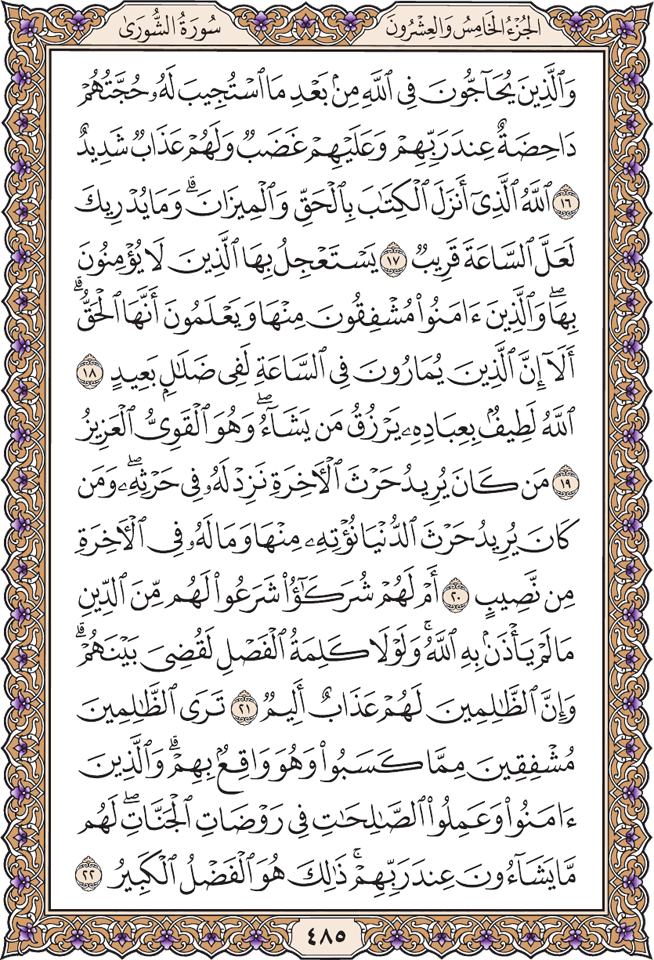 الجزء الخامس والعشرون
سورة الشورى
وَٱلَّذِينَ يُحَآجُّونَ فِى ٱللَّهِ مِنۢ بَعْدِ مَا ٱسْتُجِيبَ لَهُۥ حُجَّتُهُمْ
دَاحِضَةٌ عِندَ رَبِّهِمْ وَعَلَيْهِمْ غَضَبٌ وَلَهُمْ عَذَابٌ شَدِيدٌ
١٦ ٱللَّهُ ٱلَّذِىٓ أَنزَلَ ٱلْكِتَٰبَ بِٱلْحَقِّ وَٱلْمِيزَانَ ۗ وَمَا يُدْرِيكَ
لَعَلَّ ٱلسَّاعَةَ قَرِيبٌ ١٧ يَسْتَعْجِلُ بِهَا ٱلَّذِينَ لَا يُؤْمِنُونَ
بِهَا ۖ وَٱلَّذِينَ ءَامَنُوا۟ مُشْفِقُونَ مِنْهَا وَيَعْلَمُونَ أَنَّهَا ٱلْحَقُّ ۗ
أَلَآ إِنَّ ٱلَّذِينَ يُمَارُونَ فِى ٱلسَّاعَةِ لَفِى ضَلَٰلٍۭ بَعِيدٍ ١٨
ٱللَّهُ لَطِيفٌۢ بِعِبَادِهِۦ يَرْزُقُ مَن يَشَآءُ ۖ وَهُوَ ٱلْقَوِىُّ ٱلْعَزِيزُ
١٩ مَن كَانَ يُرِيدُ حَرْثَ ٱلْءَاخِرَةِ نَزِدْ لَهُۥ فِى حَرْثِهِۦ ۖ وَمَن
كَانَ يُرِيدُ حَرْثَ ٱلدُّنْيَا نُؤْتِهِۦ مِنْهَا وَمَا لَهُۥ فِى ٱلْءَاخِرَةِ
مِن نَّصِيبٍ ٢٠ أَمْ لَهُمْ شُرَكَٰٓؤُا۟ شَرَعُوا۟ لَهُم مِّنَ ٱلدِّينِ
مَا لَمْ يَأْذَنۢ بِهِ ٱللَّهُ ۚ وَلَوْلَا كَلِمَةُ ٱلْفَصْلِ لَقُضِىَ بَيْنَهُمْ ۗ
وَإِنَّ ٱلظَّٰلِمِينَ لَهُمْ عَذَابٌ أَلِيمٌ ٢١ تَرَى ٱلظَّٰلِمِينَ
مُشْفِقِينَ مِمَّا كَسَبُوا۟ وَهُوَ وَاقِعٌۢ بِهِمْ ۗ وَٱلَّذِينَ
ءَامَنُوا۟ وَعَمِلُوا۟ ٱلصَّٰلِحَٰتِ فِى رَوْضَاتِ ٱلْجَنَّاتِ ۖ لَهُم
مَّا يَشَآءُونَ عِندَ رَبِّهِمْ ۚ ذَٰلِكَ هُوَ ٱلْفَضْلُ ٱلْكَبِيرُ ٢٢
٤٨٥